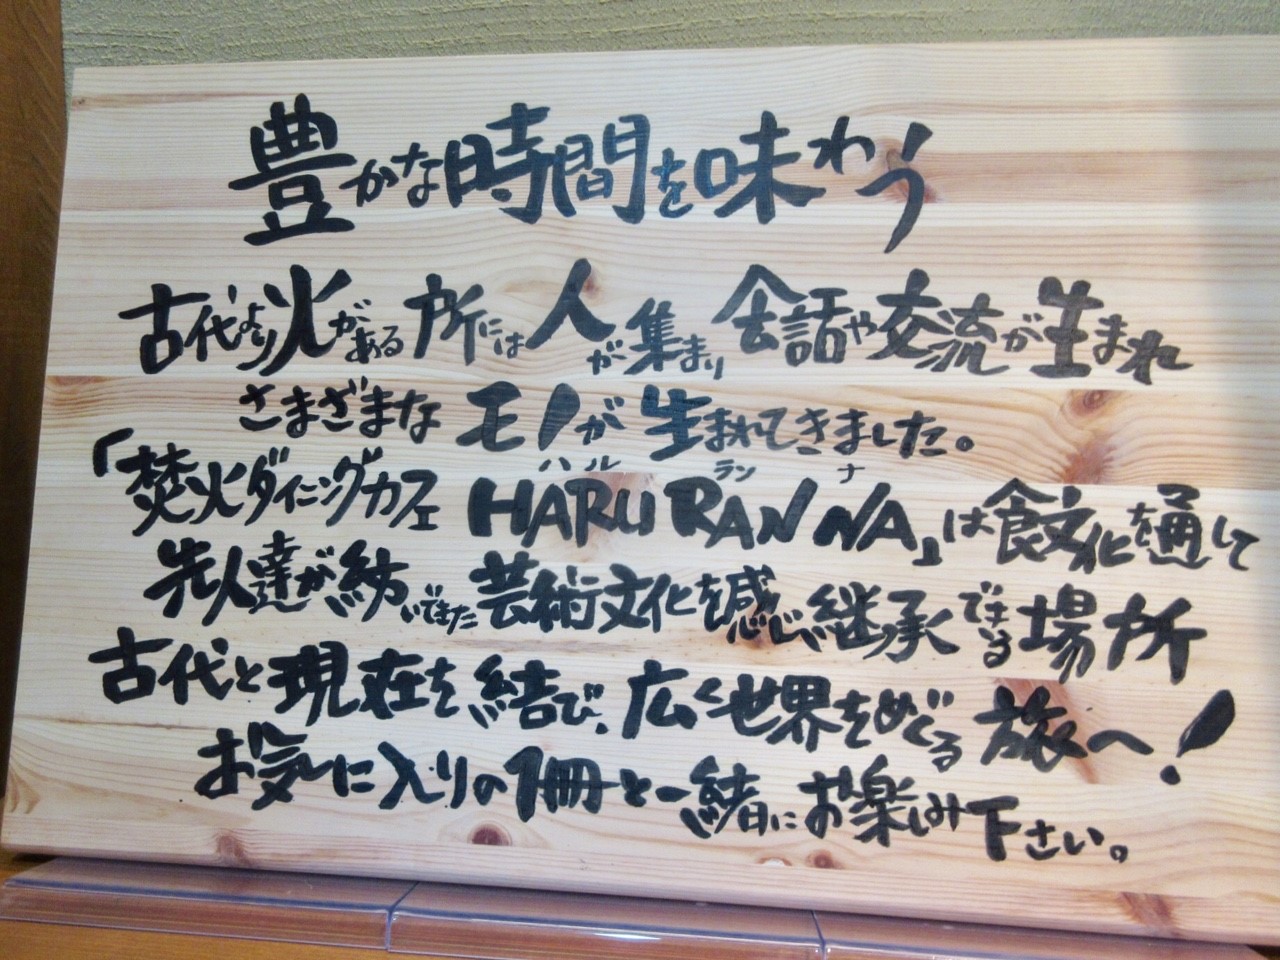 豊かな時間を味わう
古代より火がある所には人が集まり会話や交流が生まれ
さまざまなモノが生まれてきました。
ハル ラン ナ
「焚火ダイニングカフェ HARU RAN NA」は食文化を通して
先人達が紡いできた芸術文化を感じ継承できる場所
古代と現在を結び、広く世界をめぐる旅へ!
お気に入りの1冊と一緒にお楽しみ下さい。